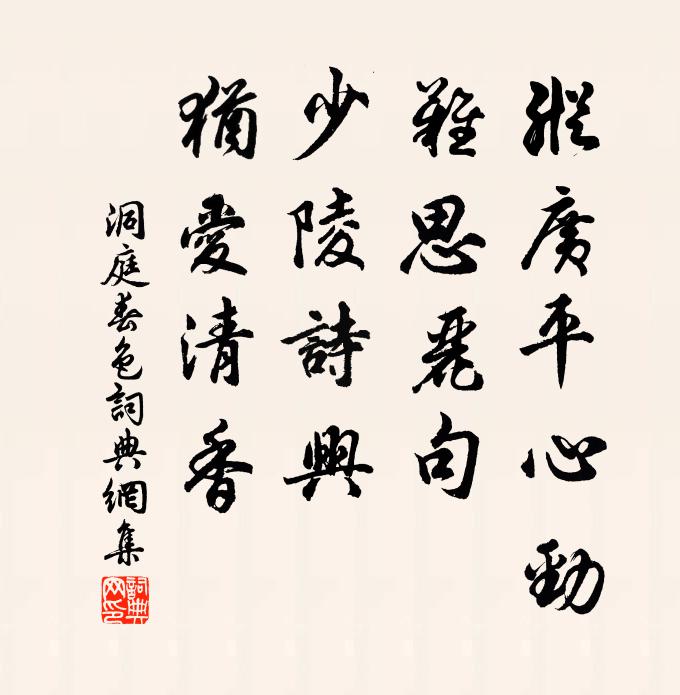 縱廣平心勁
難思麗句
少陵詩興
猶愛清香
洞庭春色詞典網集
詞典網印